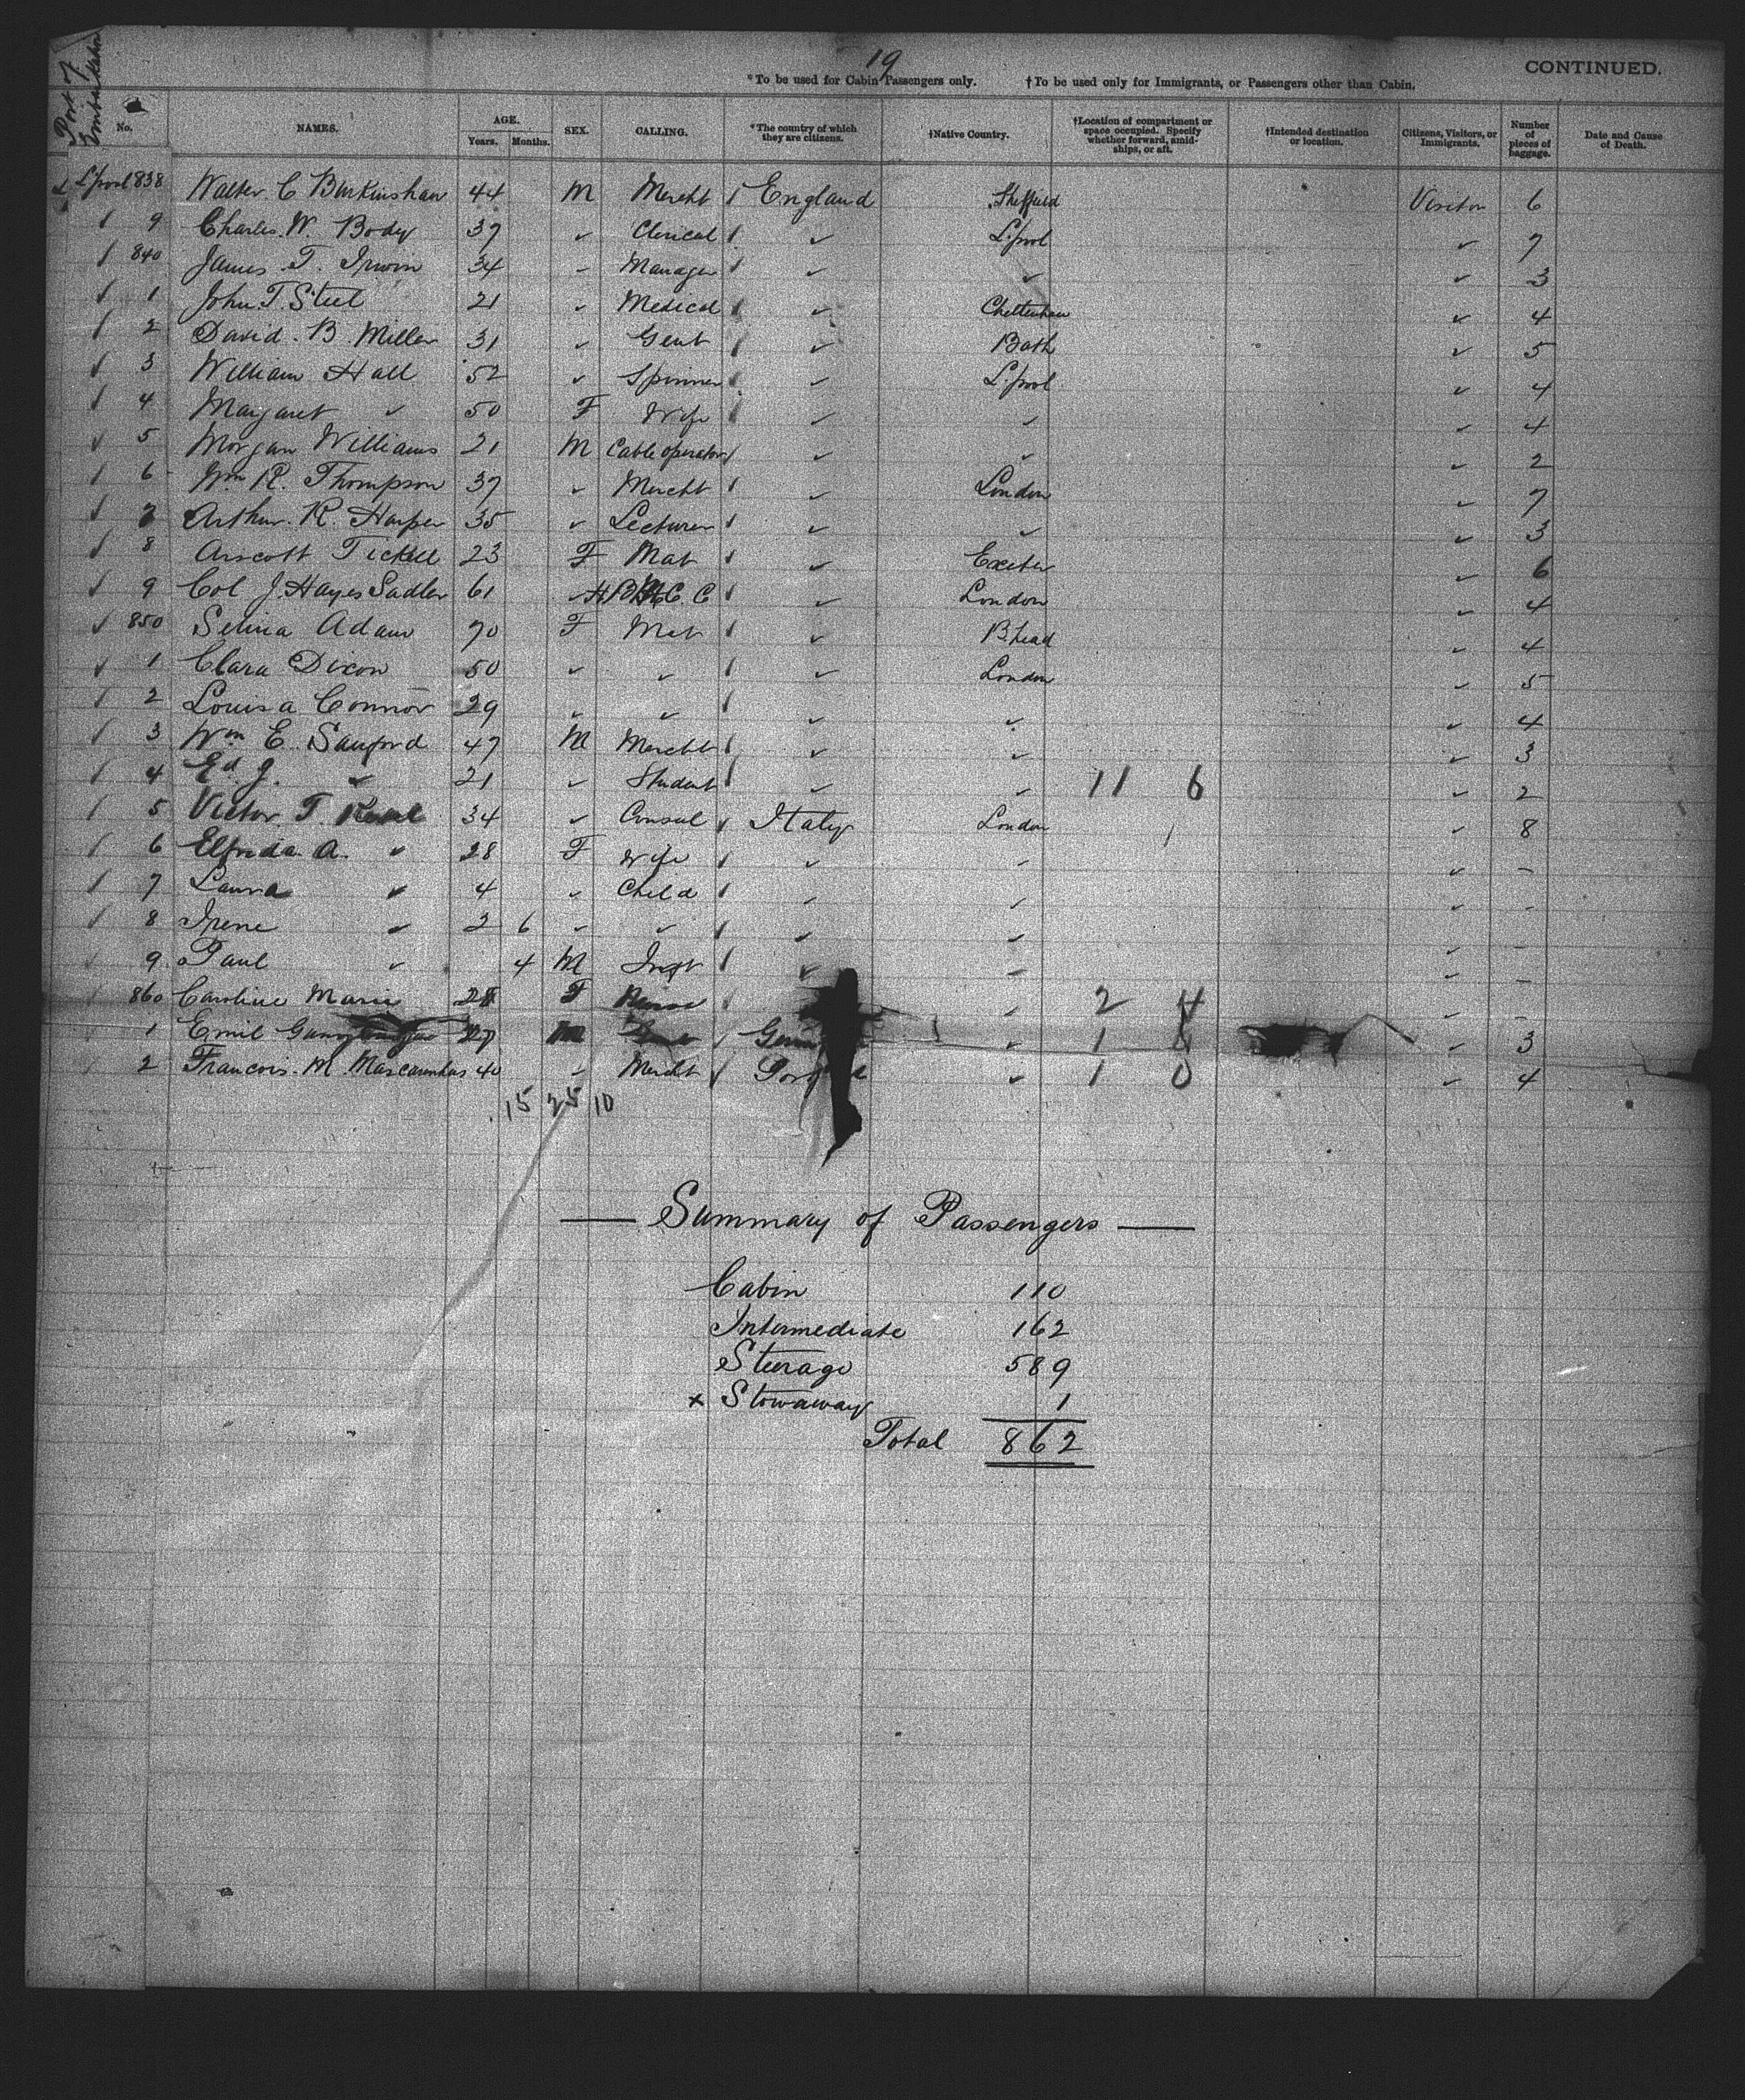 19
*To be used for Cabin Passengers only. †To be used only for Immigrants, or Passengers other than Cabin. CONTINUED.
Port of Embarkation
No. NAMES. AGE. Years. Months. SEX. CALLING. *The country of which they are citizens. †Native Country. †Location of compartment or space occupied. Specify whether forward, amidships, or aft. †Intended destination or location. Citizens, Visitors, or Immigrants. Number of pieces of baggage. Date and Cause of Death.
L'pool 838 Walter C Burkinshaw 44 M Mercht England Sheffield Visitor 6
9 Charles W. Body 37 ✓ Clerical ✓ L'pool ✓ 7
840 James T. Irwin 34 ✓ Manager ✓ ✓ ✓ 3
1 John T. Steel 21 ✓ Medical ✓ Cheltenham ✓ 4
2 David B Miller 31 ✓ Gent ✓ Bath ✓ 5
3 William Hall 52 ✓ Spinner ✓ L'pool ✓ 4
4 Margaret ✓ 50 F Wife ✓ ✓ ✓ 4
5 Morgan Williams 21 M Cable operator ✓ ✓ ✓ 2
6 Wm R. Thompson 37 ✓ Mercht ✓ London ✓ 7
7 Arthur R. Harper 35 ✓ Lecturer ✓ ✓ ✓ 3
8 Arscott Tickell 23 F Mat ✓ Exeter ✓ 6
9 Col J. Hayes Sadler 61 ✓ H B M C. C ✓ London ✓ 4
850 Selina Adam 70 F Mat ✓ B.head ✓ 4
1 Clara Dixon 50 ✓ ✓ ✓ London ✓ 5
2 Louisa Connor 29 ✓ ✓ ✓ ✓ ✓ 4
3 Wm E. Sanford 47 M Mercht ✓ ✓ ✓ 3
4 Ed. J. ✓ 21 ✓ Student ✓ ✓ 11 6 ✓ 2
5 Victor T. 34 ✓ Consul Italy London ✓ 8
6 Elfrida A. ✓ 28 F Wife ✓ ✓ ✓ -
7 Laura ✓ 4 ✓ Child ✓ ✓ ✓ -
8 Irene ✓ 2 6 ✓ ✓ ✓ ✓ ✓ -
9 Paul ✓ 4 M Inft ✓ ✓ ✓ -
860 Caroline Marie F ✓ 2 4 ✓ -
1 Emil M ✓ 1 ✓ 3
2 Francois. M. Mascarenhas 40 ✓ Mercht ✓ 1 0 ✓ 4
15 25 10
Summary of Passengers
Cabin 110
Intermediate 162
Steerage 589
x Stowaway 1
Total 862